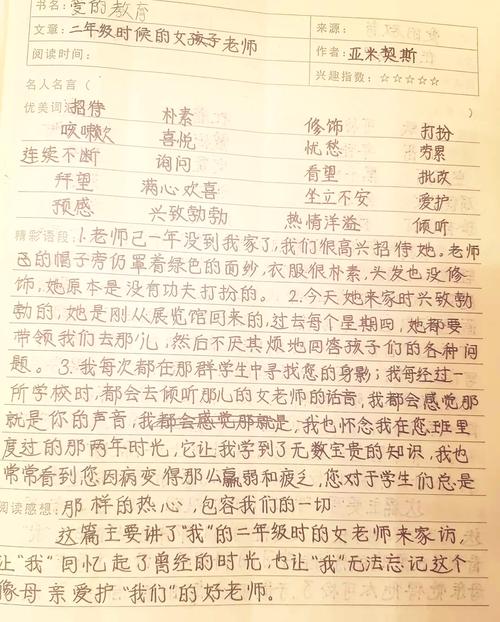 书名：爱的教育
文章：二年级时候的女孩子老师 来源：
阅读时间： 作者：亚米契斯
兴趣指数：☆☆☆☆☆
名人名言（ ）
优美词汇：招待 朴素 修饰 打扮
咳嗽 喜悦 忧愁 劳累
连续不断 询问 看望 批改
拜望 满心欢喜 坐立不安 爱护
预感 兴致勃勃 热情洋溢 倾听
精彩语段：1.老师已一年没到我家了，我们很高兴招待她。老师
的帽子旁仍罩着绿色的面纱，衣服很朴素，头发也没修
饰，她原本是没有功夫打扮的。 2.今天她来家时兴致勃
勃的，她是刚从展览馆回来的，过去每个星期吗，她都要
带领我们去那儿，然后不厌其烦地回答孩子们的各种问
题。 3.我每次都在那群学生中寻找您的身影；我每经过一
所学校时，都会去倾听那儿的女老师的话音，我都会感觉那
就是你的声音，我都会感觉那就是，我也怀念我在您班里
度过的那两年时光，它让我学到了无数宝贵的知识，我也
常常看到您因病变得那么羸弱和疲乏，您对于学生们总是
阅读感想：那样的热心，包容我们的一切
这篇主要讲了“我”的二年级时的女老师来家访，
让“我”回忆起了曾经的时光，也让“我”无法忘记这个
像母亲爱护“我们”的好老师。